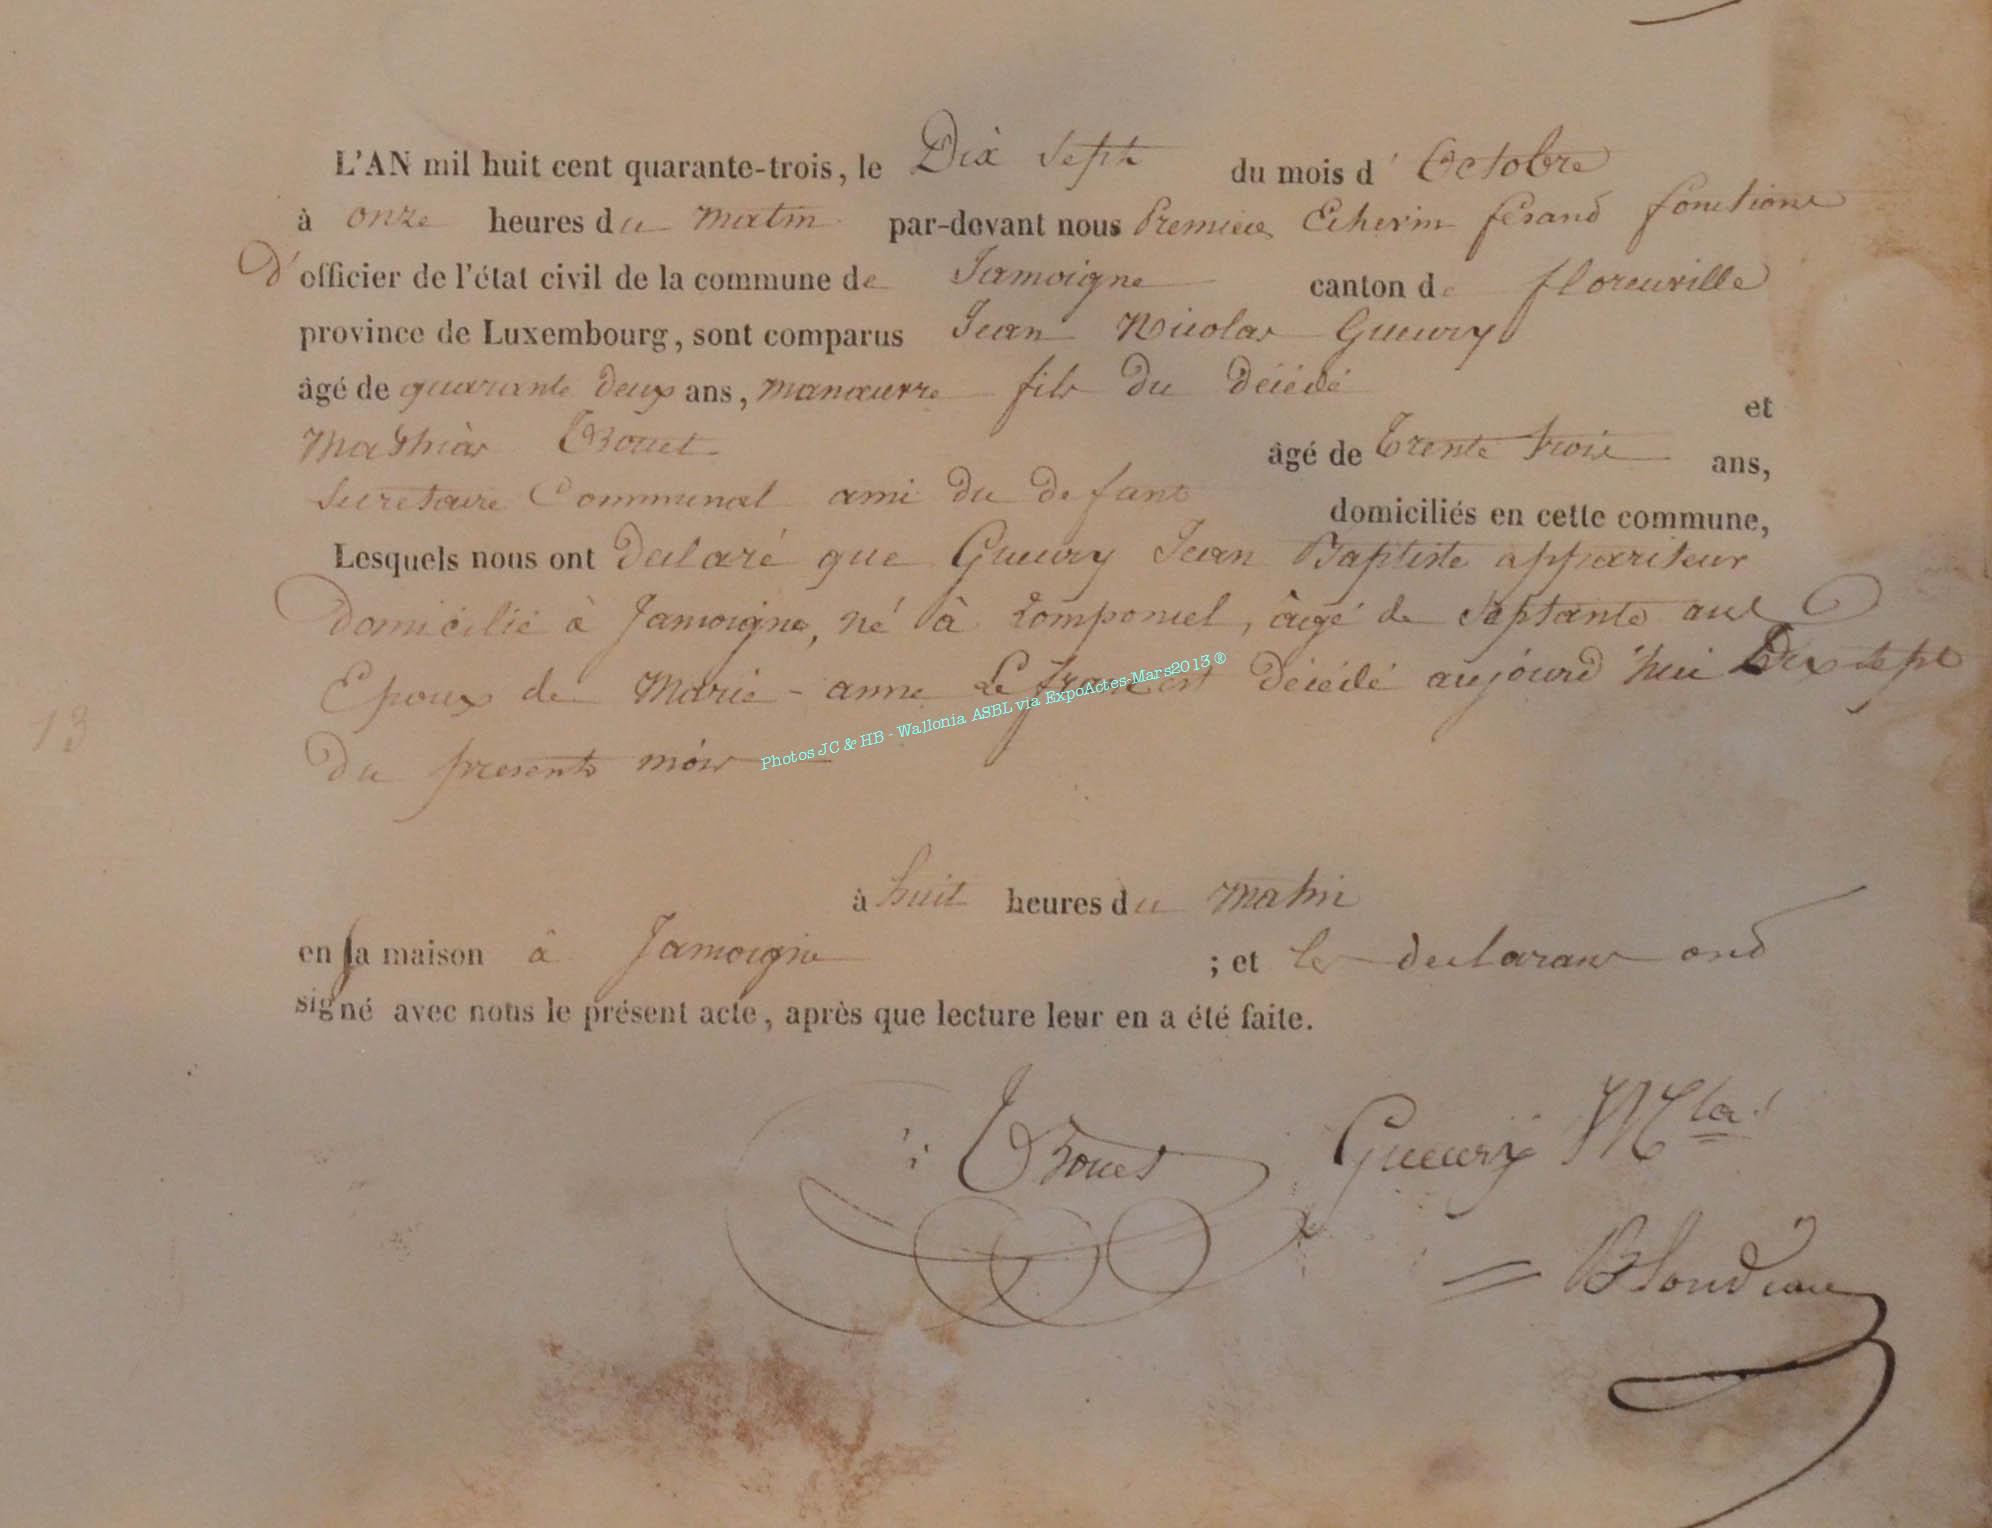 L'AN mil huit cent quarante-trois, le Dix Sept du mois d'Octobre
à onze heures du matin par-devant nous Premier Echevin fesand fonctions
D'officier de l'état civil de la commune de Jamoigne canton de florenville
province de Luxembourg, sont comparus Jean Nicolas Gueury
âgé de quarante deux ans, manœuvre fils du Décédé
et
Mathias Bouet âgé de Trente trois ans,
Secretaire Communal ami du defunt domiciliés en cette commune,
Lesquels nous ont Declaré que Gueury Jean Baptiste appariteur
Domicilié à Jamoigne, né à romponcel, âgé de Septante ans
Epoux de Marie-anne Décédé aujourd'hui Dix sept
Du present mois
Photos JC & HB - Wallonia ASBL via ExpoActes-Mars2013 ®
13
à huit heures du matin
en sa maison à Jamoigne ; et les declarans ond
signé avec nous le présent acte, après que lecture leur en a été faite.
Bouet Gueury
Blondeau